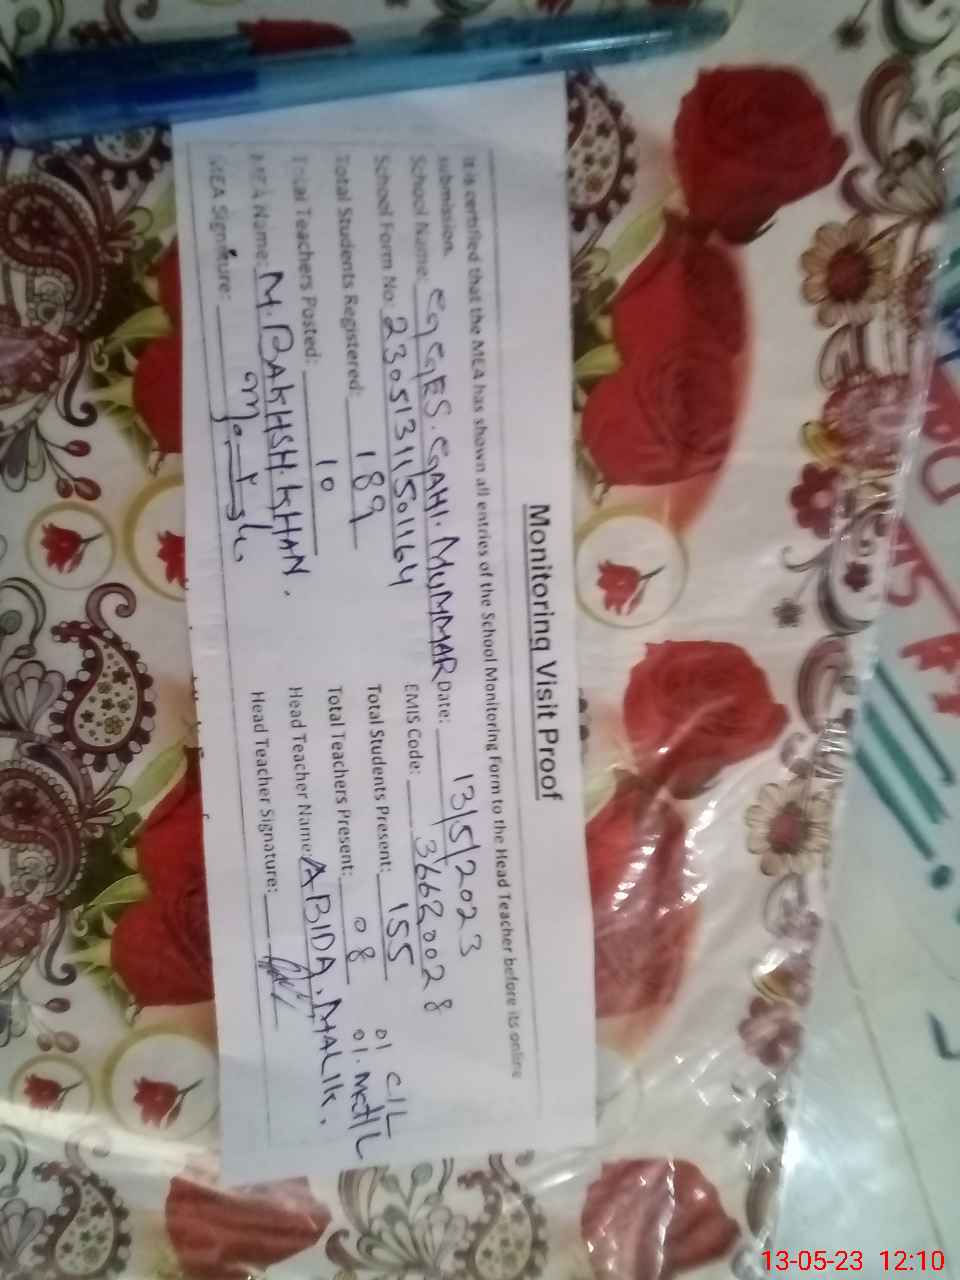 Monitoring Visit Proof
It is certified that the MEA has shown all entries of the School Monitoring Form to the Head Teacher before its online
submission.
School Name: GGES.GAHI.MUMMAR Date: 13/5/2023
School Form No. 23051311501164 EMIS Code: 36620028
Total Students Registered: 189 Total Students Present: 155 01 C/L
Total Teachers Posted: 10 Total Teachers Present: 08 01. Mat/L
MEA Name: M. BAKHSH. KHAN. Head Teacher Name: ABIDA. MALIK.
MEA Signature: Head Teacher Signature:
13-05-23 12:10